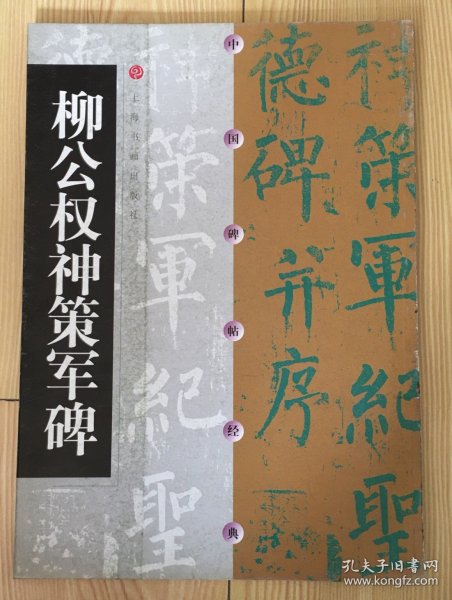 柳公权神策军碑
上海书画出版社
神策軍紀聖
中国碑帖经典
神策軍紀聖
德碑并序
孔夫子旧书网
www.kongfz.com